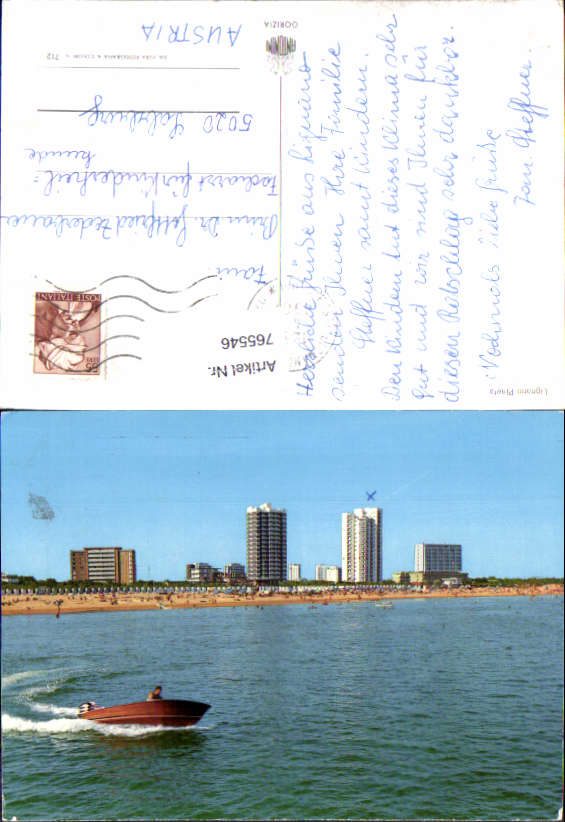 Lignano Pineta
Herzliche Grüße aus Lignano
senden Ihnen Ihre Familie
Steffner samt Kindern.
Den Kindern tut dieses Klima sehr
gut und wir sind Ihnen für
diesen Ratschlag sehr dankbar.
Nochmals liebe Grüße
Fam. Steffner.
GORIZIA
Artikel Nr.
765546
POSTE ITALIANE
55
LIRE
Fam
Prim. Dr. Gottfried
Facharzt für Kinderheil=
kunde
5020 Salzburg
AUSTRIA
712
x